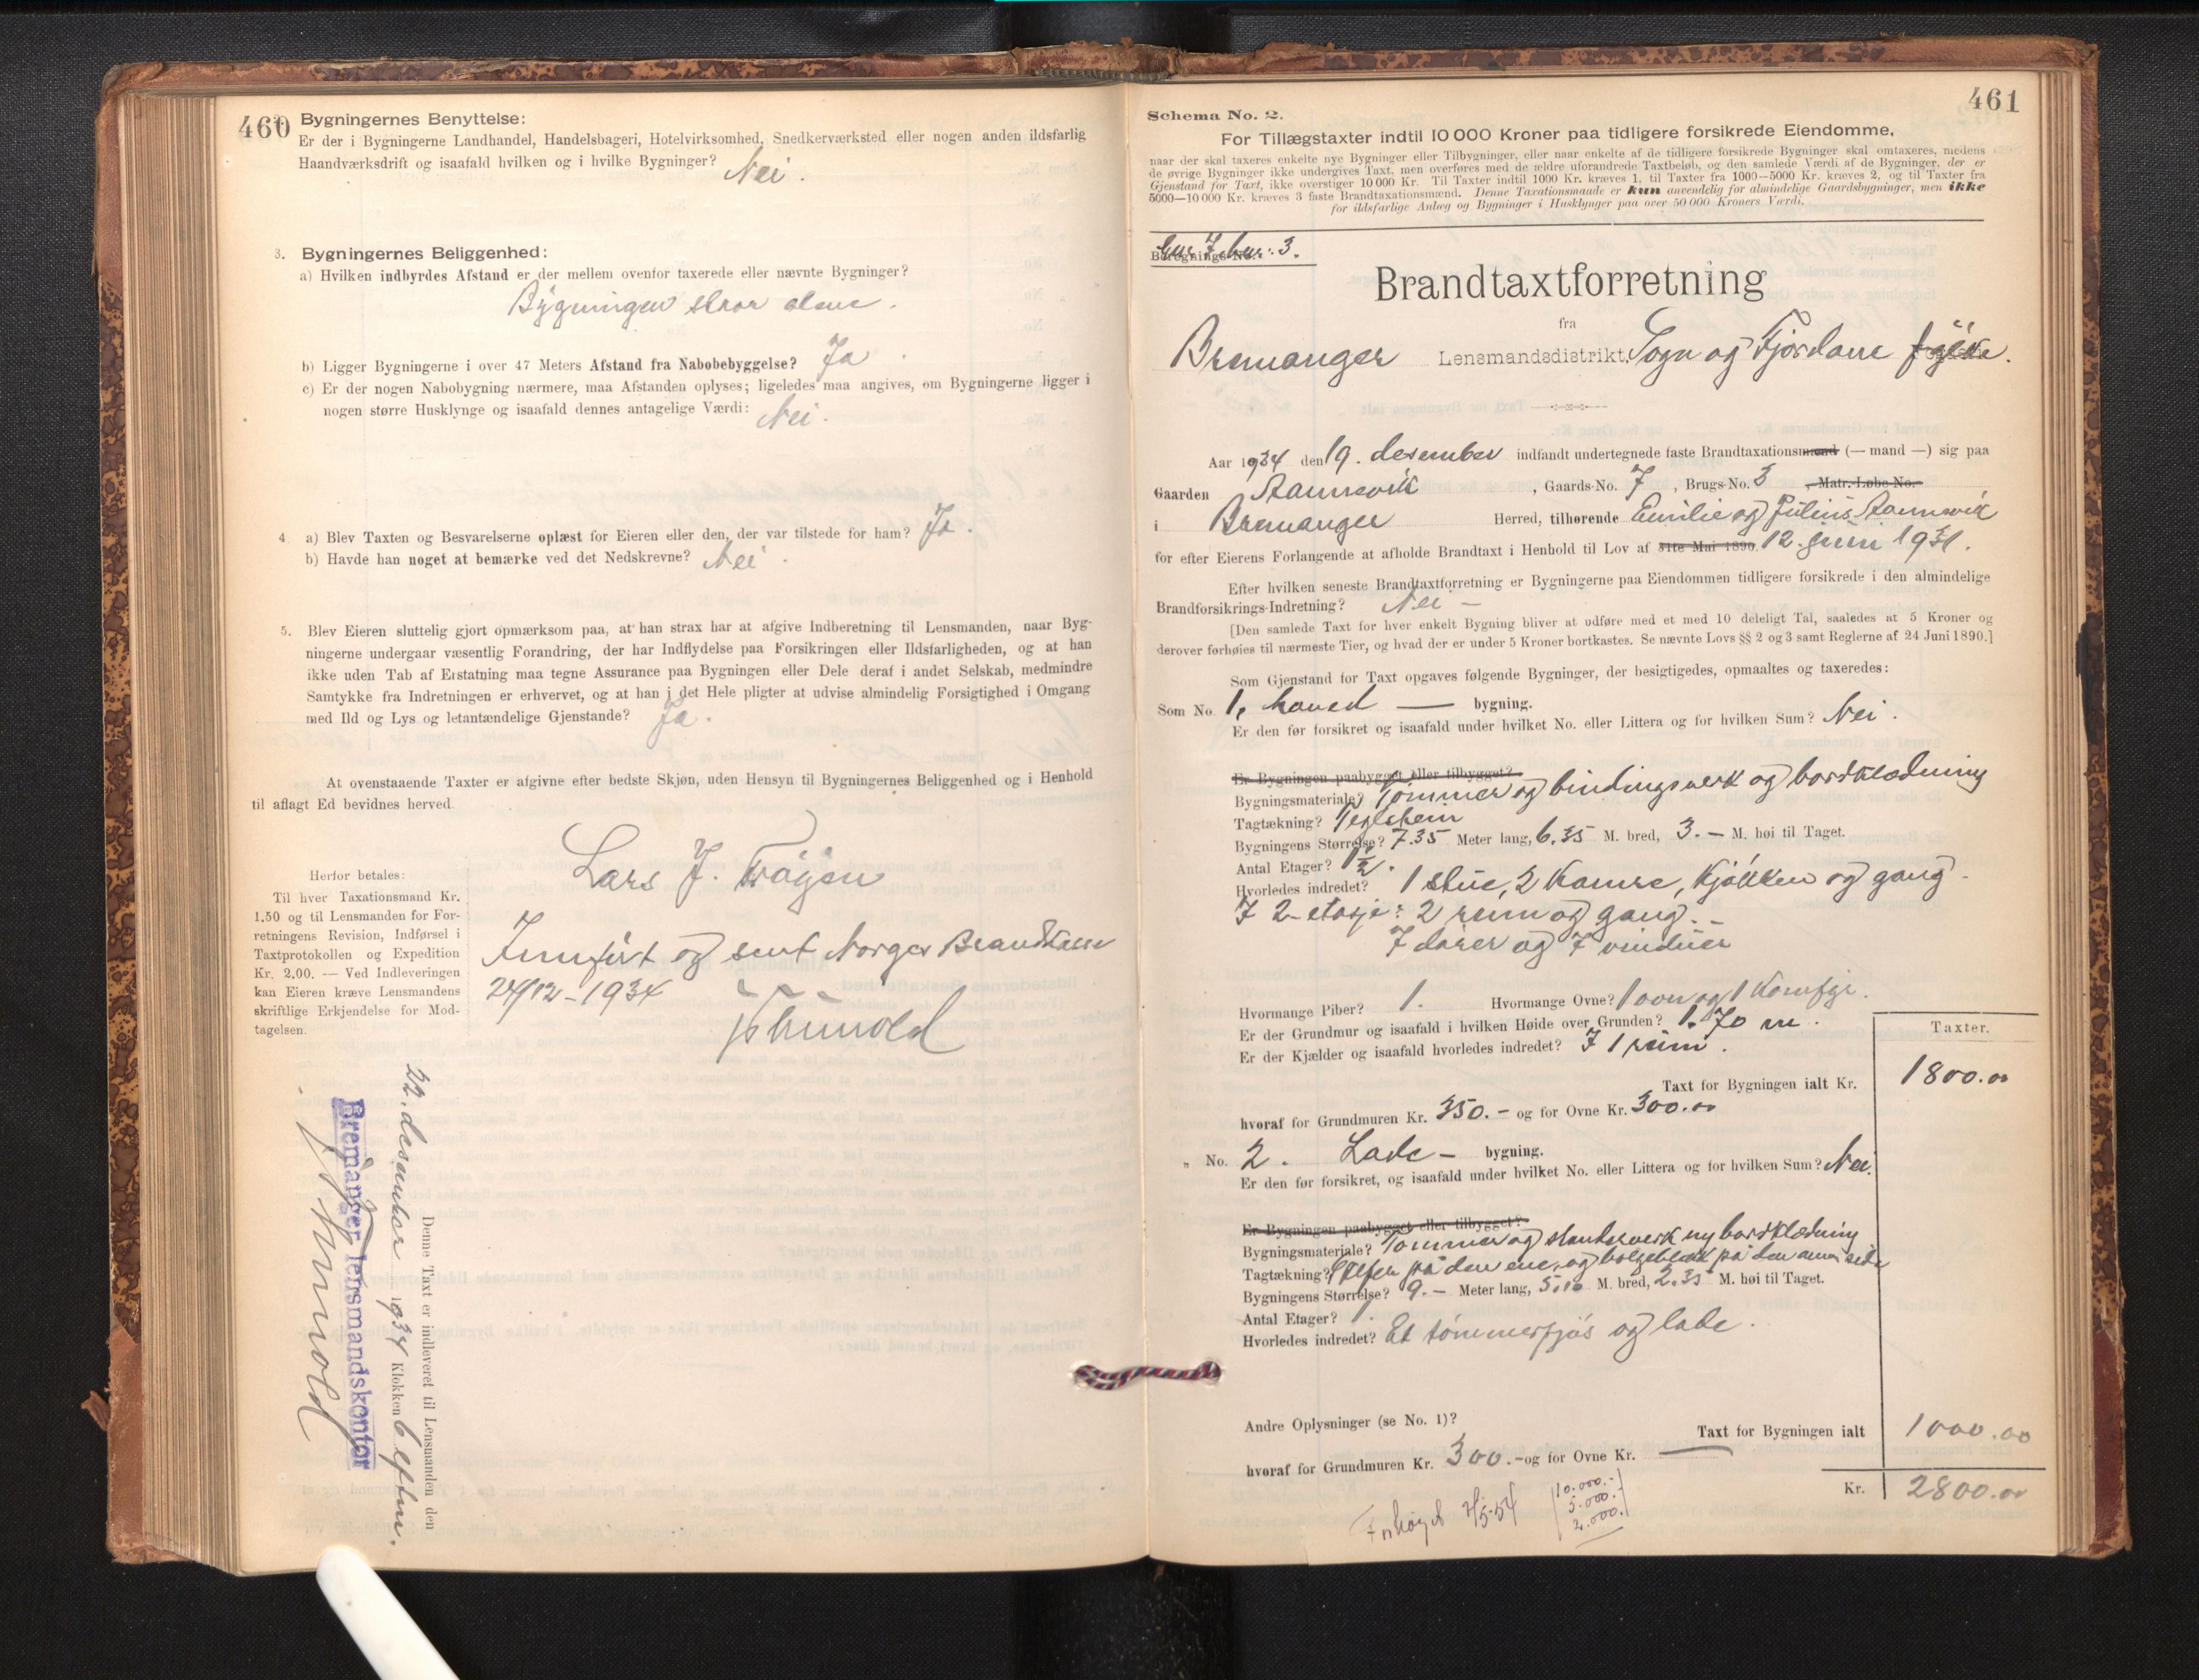 460
2. Bygningernes Benyttelse:
Er der i Bygningerne Landhandel, Handelsbageri, Hotelvirksomhed, Snedkerværksted eller nogen anden ildsfarlig
Haandværksdrift og isaafald hvilken og i hvilke Bygninger? Nei.
3. Bygningernes Beliggenhed:
a) Hvilken indbyrdes Afstand er der mellem ovenfor taxerede eller nævnte Bygninger?
Bygningen staar alene.
b) Ligger Bygningerne i over 47 Meters Afstand fra Nabobebyggelse? Ja
c) Er der nogen Nabobygning nærmere, maa Afstanden oplyses; ligeledes maa angives, om Bygningerne ligger i
nogen større Husklynge og isaafald dennes antagelige Værdi: Nei.
4. a) Blev Taxten og Besvarelserne oplæst for Eieren eller den, der var tilstede for ham? Ja.
b) Havde han noget at bemærke ved det Nedskrevne? Nei.
5. Blev Eieren sluttelig gjort opmærksom paa, at han strax har at afgive Indberetning til Lensmanden, naar Byg-
ningerne undergaar væsentlig Forandring, der har Indflydelse paa Forsikringen eller Ildsfarligheden, og at han
ikke uden Tab af Erstatning maa tegne Assurance paa Bygningen eller Dele deraf i andet Selskab, medmindre
Samtykke fra Indretningen er erhvervet, og at han i det Hele pligter at udvise almindelig Forsigtighed i Omgang
med Ild og Lys og letantændelige Gjenstande? Ja.
At ovenstaaende Taxter er afgivne efter bedste Skjøn, uden Hensyn til Bygningernes Beliggenhed og i Henhold
til aflagt Ed bevidnes herved.
Lars J. Frøyen
Herfor betales:
Til hver Taxationsmand Kr.
1.50 og til Lensmanden for For-
retningens Revision, Indførsel i
Taxtprotokollen og Expedition
Kr. 2.00. — Ved Indleveringen
kan Eieren kræve Lensmandens
skriftlige Erkjendelse for Mod-
tagelsen.
Innført og sent Norges Brandkasse
24/12-1934
Denne Taxt er indleveret til Lensmanden den
22. desember 1934 Klokken 6 eftm.
Bremanger lensmandskontor
461
Schema No. 2.
For Tillægstaxter indtil 10 000 Kroner paa tidligere forsikrede Eiendomme,
naar der skal taxeres enkelte nye Bygninger eller Tilbygninger, eller naar enkelte af de tidligere forsikrede Bygninger skal omtaxeres, medens
de øvrige Bygninger ikke undergives Taxt, men overføres med de ældre uforandrede Taxtbeløb, og den samlede Værdi af de Bygninger, der er
Gjenstand for Taxt, ikke overstiger 10 000 Kr. Til Taxter indtil 1000 Kr. kræves 1, til Taxter fra 1000—5000 Kr. kræves 2, og til Taxter fra
5000—10 000 Kr. kræves 3 faste Brandtaxationsmænd. Denne Taxationsmaade er kun anvendelig for almindelige Gaardsbygninger, men ikke
for ildsfarlige Anlæg og Bygninger i Husklynger paa over 50 000 Kroners Værdi.
Gnr. 7 bnr. 3.
Brandtaxtforretning
fra
Bremanger Lensmandsdistrikt, Sogn og Fjordane fylke.
Aar 1934 den 19. desember indfandt undertegnede faste Brandtaxationsmænd (— mand —) sig paa
Gaarden Stannevik, Gaards-No. 7, Brugs-No. 3, Matr.-Løbe-No.
i Bremanger Herred, tilhørende Emilie og Julius Stannevik
for efter Eierens Forlangende at afholde Brandtaxt i Henhold til Lov af 31te Mai 1890. 12. juni 1931.
Efter hvilken seneste Brandtaxtforretning er Bygningerne paa Eiendommen tidligere forsikrede i den almindelige
Brandforsikrings-Indretning? Nei -
[Den samlede Taxt for hver enkelt Bygning bliver at udføre med et med 10 deleligt Tal, saaledes at 5 Kroner og
derover forhøies til nærmeste Tier, og hvad der er under 5 Kroner bortkastes. Se nævnte Lovs §§ 2 og 3 samt Reglerne af 24 Juni 1890.]
Som Gjenstand for Taxt opgaves følgende Bygninger, der besigtigedes, opmaaltes og taxeredes:
Som No. 1. Hoved — bygning.
Er den før forsikret og isaafald under hvilket No. eller Littera og for hvilken Sum? Nei.
Er Bygningen paabygget eller tilbygget?
Bygningsmateriale? Tømmer og bindingsverk og bordklædning
Tagtækning? Teglstein
Bygningens Størrelse? 7.35 Meter lang, 6.35 M. bred, 3.- M. høi til Taget.
Antal Etager? 1 1/2.
Hvorledes indredet? 1 stue, 2 kamre, kjøkken og gang -
I 2-etasje: 2 rum og gang. -
7 dører og 7 vinduer
Hvormange Piber? 1. Hvormange Ovne? 1 ovn og 1 komfyr.
Er der Grundmur og isaafald i hvilken Høide over Grunden? 1.70 m.
Er der Kjælder og isaafald hvorledes indredet? I 1 rum.
Taxter.
Taxt for Bygningen ialt Kr. 1800.00
hvoraf for Grundmuren Kr. 350.- og for Ovne Kr. 300.00
„ No. 2. Lade - bygning.
Er den før forsikret, og isaafald under hvilket No. eller Littera og for hvilken Sum? Nei.
Er Bygningen paabygget eller tilbygget?
Bygningsmateriale? Tømmer og standerverk ny bordklædning
Tagtækning? Skifer på den ene, og bølgeblekk på den annen side
Bygningens Størrelse? 9.- Meter lang, 5.10 M. bred, 2.35 M. høi til Taget.
Antal Etager? 1.
Hvorledes indredet? Et tømmerfjøs og lade.
Andre Oplysninger (se No. 1)?
Taxt for Bygningen ialt 1000.00
hvoraf for Grundmuren Kr. 300.- og for Ovne Kr. —
Kr. 2800.00
Forhøyet 4/5-54
10.000.-
5.000.-
2.000.